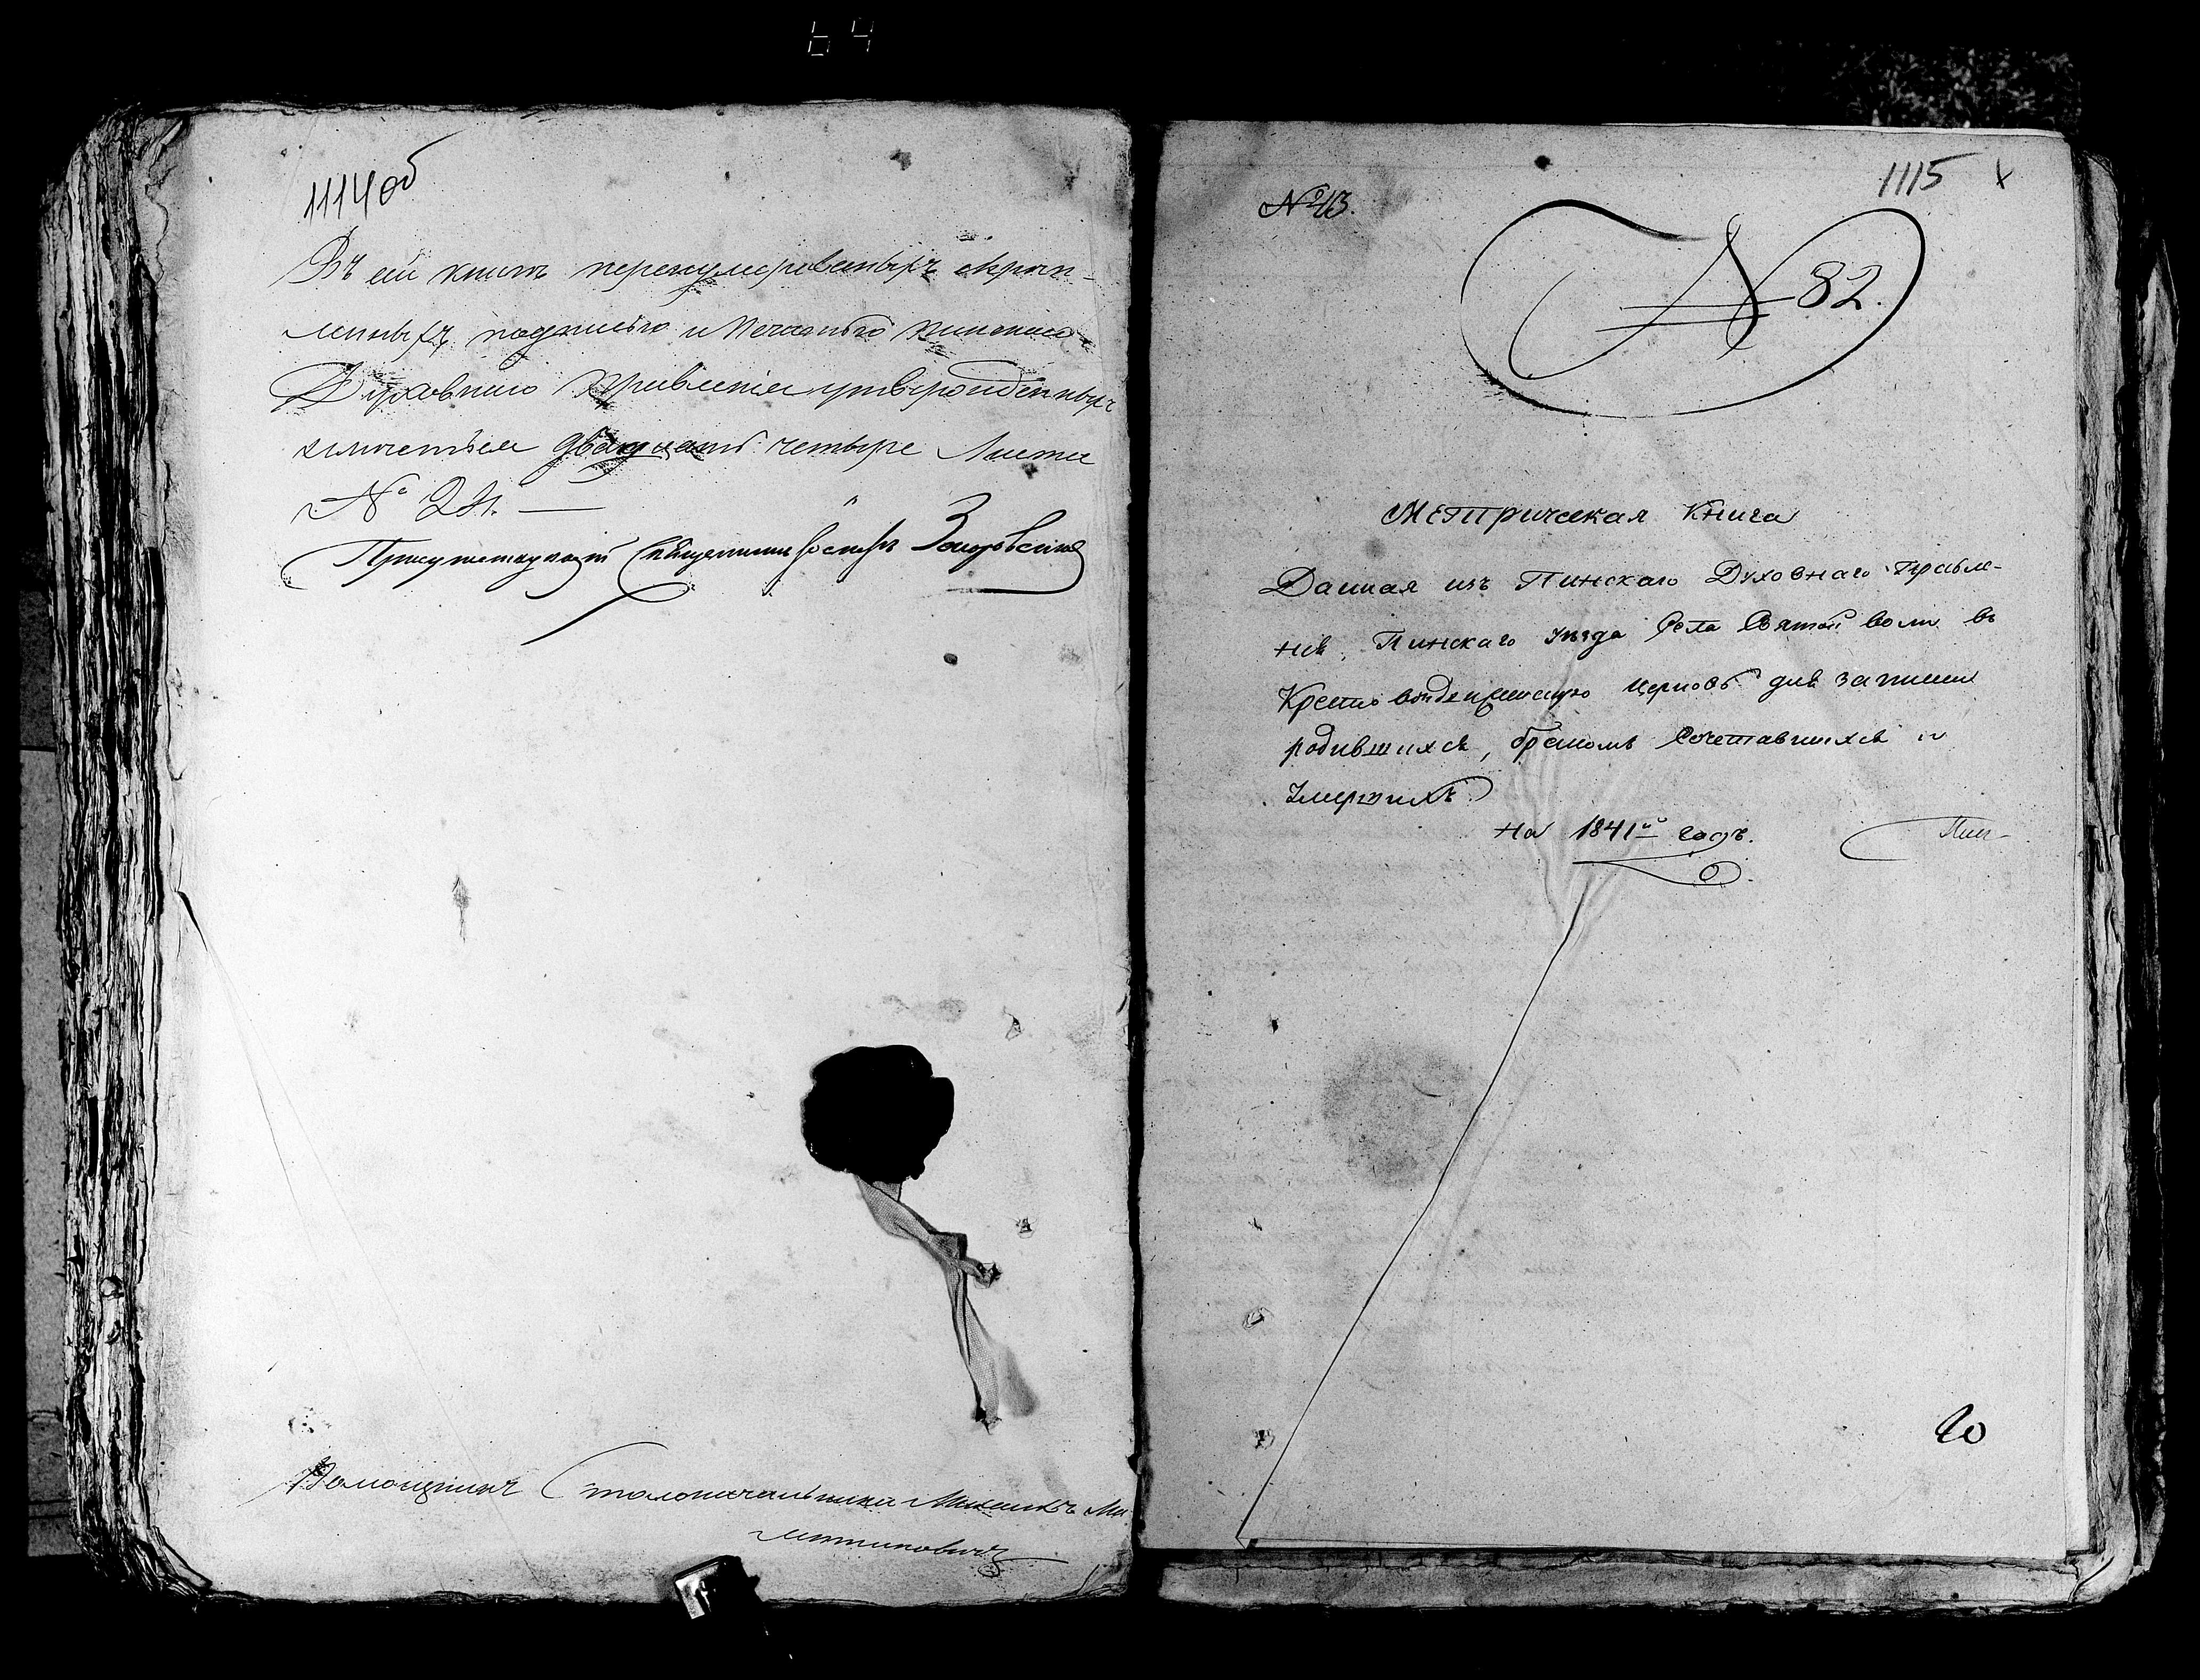 64
1114об
Въ сей книге перенумерованныхъ скреп-
ленныхъ подписью и Печатью Пинскаго
Духовнаго Правленія утвержденныхъ
двадцать четыре Листа
№ 24.
Присутствующій Священникъ
Помощникъ Столоначальника
1115
№ 43.
№ 82.
Метрическая Книга
Данная изъ Пинскаго Духовнаго Правле-
нія, Пинскаго уезда Села Святой воли въ
Кресто воздвиженскую церковь для записки
родившихся, бракомъ Сочетавшихся и
Умершихъ
на 1841й годъ.
Пин-
20